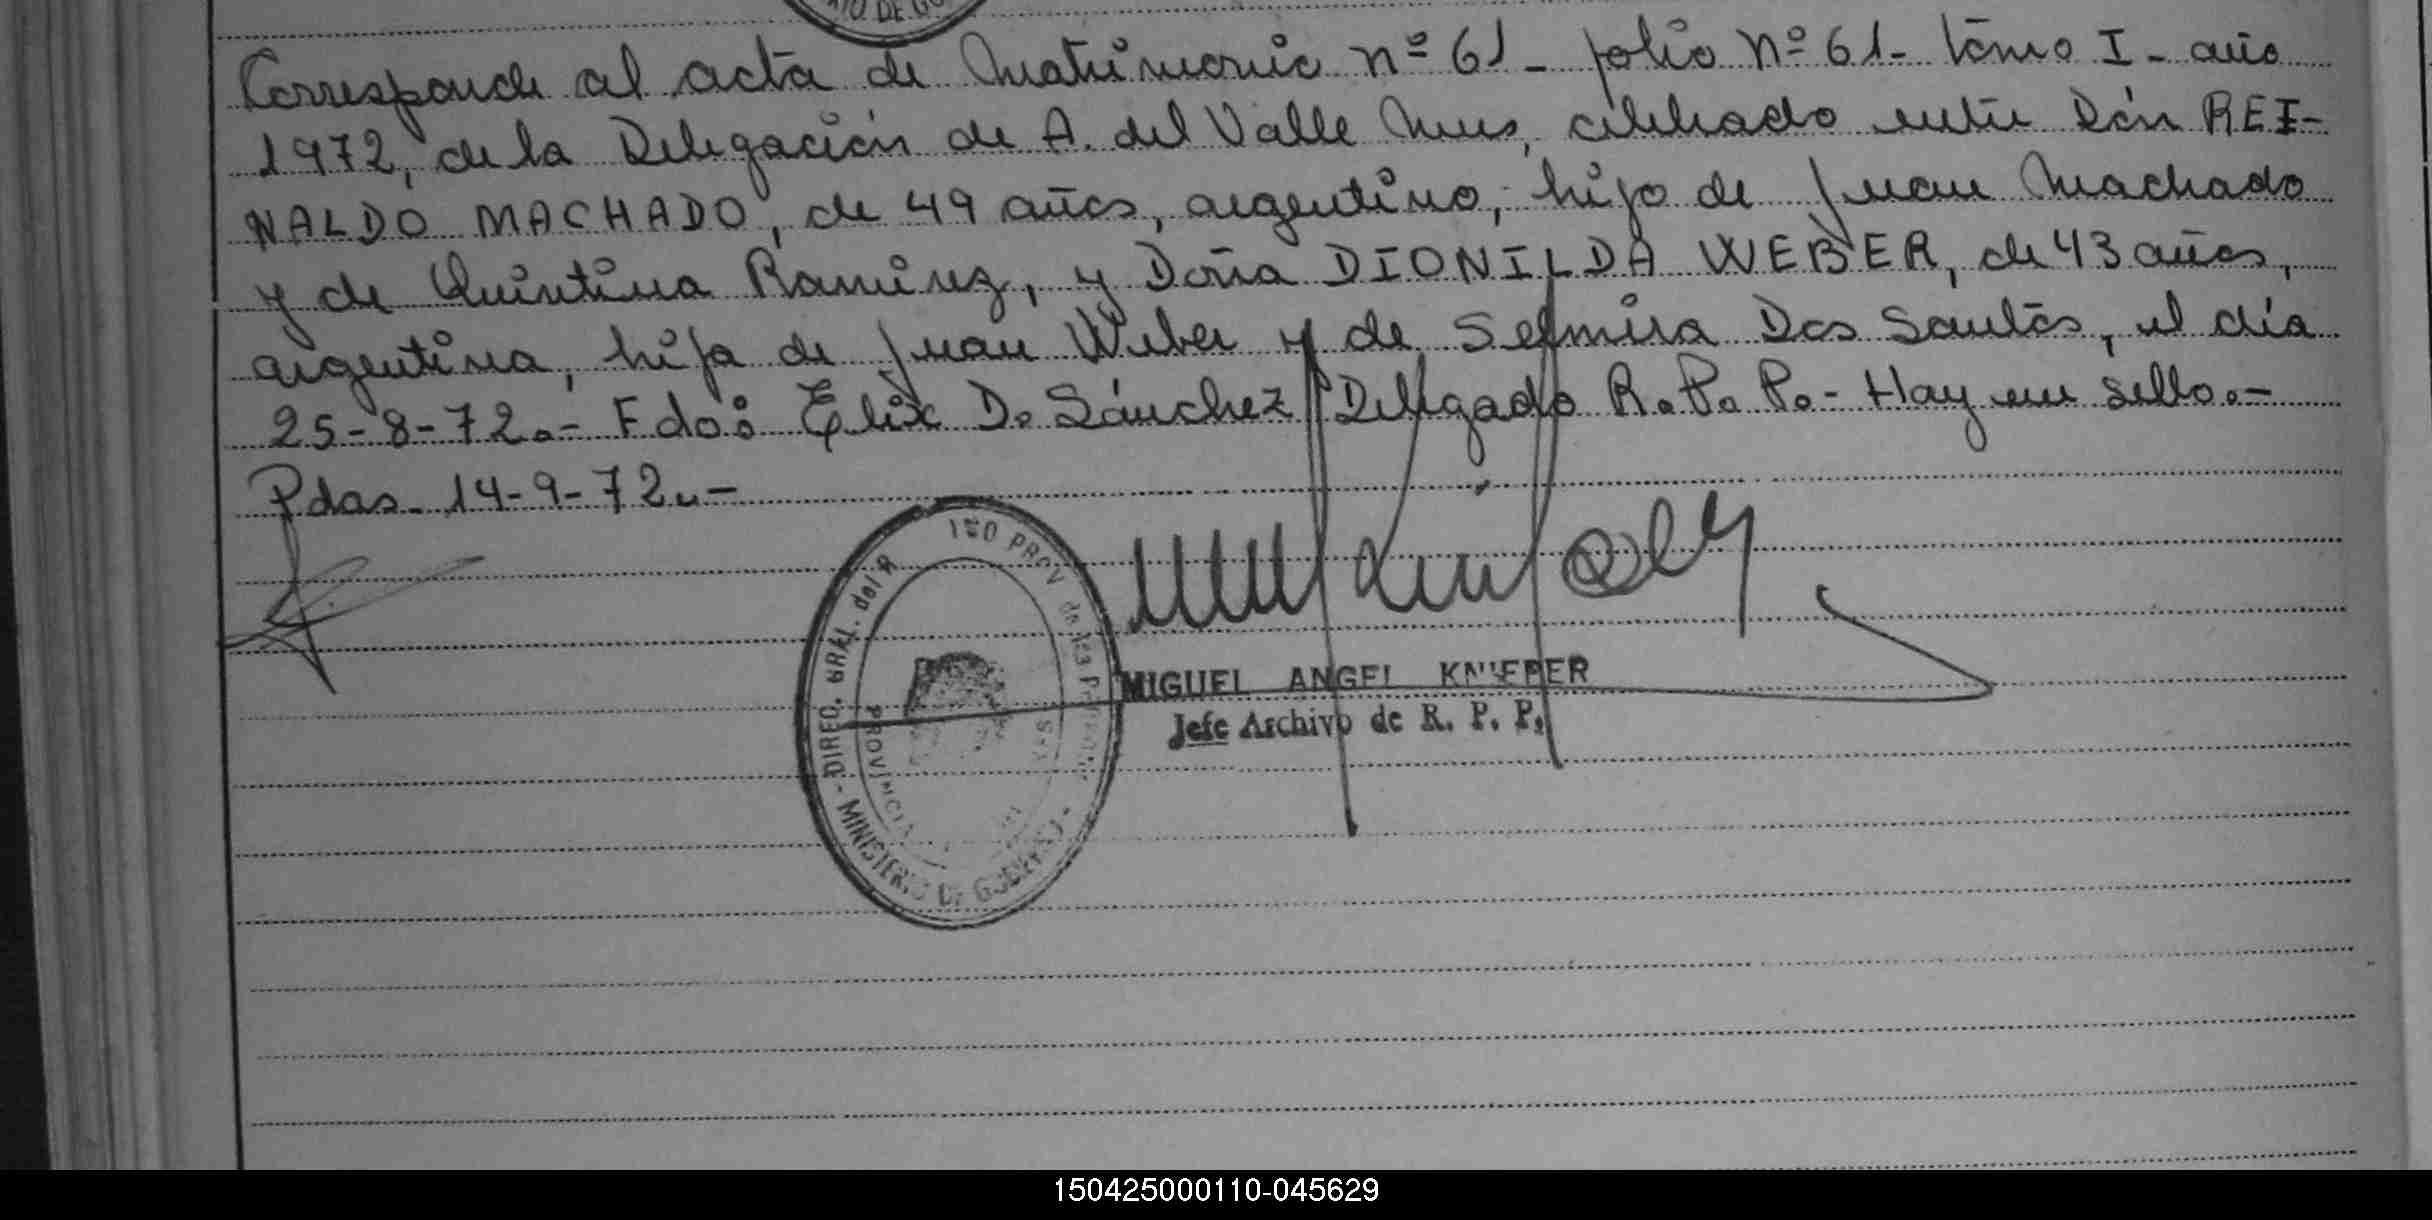 RIO DE GO
Corresponde al acta de Matrimonio nº 61 - folio nº 61 - tomo I - año
1972, de la Delegación de A. del Valle Mnes, celebrado entre Dón REI-
NALDO MACHADO, de 49 años, argentino, hijo de Juan Machado
y de Quintina Ramirez, y Doña DIONILDA WEBER, de 43 años,
argentina, hija de Juan Weber y de Selmira Dos Santos, el día
25-8-72.- Fdo: Elix D. Sánchez Delegado R. P. P.- Hay un sello.-
Pdas. 14-9-72.-
DIREC. GRAL. del R PROV de las
PROVINCIA
MINISTERIO DE GOBIERNO
MIGUEL ANGEL
Jefe Archivo de R. P. P.
150425000110-045629